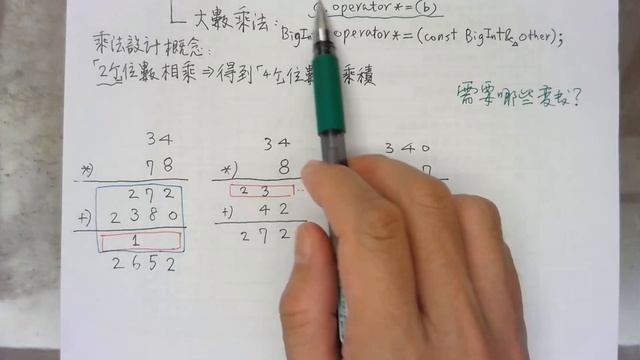 operator*=(b)
大數乘法: BigInt operator*=(const BigInt& other);
乘法設計概念:
「2個位數相乘⇒得到「4個位數 乘積
需要哪些變數?
34 34 340
*) 78 *) 8 7
272 23
+) 2380 +) 42
1 272
2652